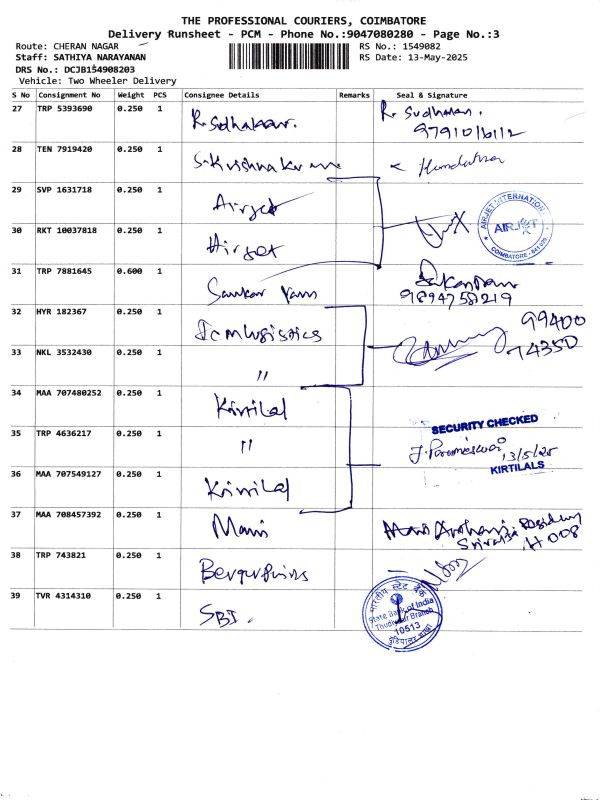 THE PROFESSIONAL COURIERS, COIMBATORE
Delivery Runsheet - PCM - Phone No.:9047080280 - Page No.:3
Route: CHERAN NAGAR
RS No.: 1549082
Staff: SATHIYA NARAYANAN
RS Date: 13-May-2025
DRS No.: DCJB154908203
Vehicle: Two Wheeler Delivery
S No Consignment No Weight PCS Consignee Details Remarks Seal & Signature
27 TRP 5393690 0.250 1 R. Sudhakaar. R. Sudhakar.
28 TEN 7919420 0.250 1 S. Krishna Kumar
29 SVP 1631718 0.250 1 Airjet
AIRJET INTERNATIONAL
AIRJET
COIMBATORE
30 RKT 10037818 0.250 1 Airjet
31 TRP 7881645 0.600 1 Sankar Ram
9894758219
32 HYR 182367 0.250 1 Icm Logistics 99400
74350
33 NKL 3532430 0.250 1 "
34 MAA 707480252 0.250 1 Kirtilal
SECURITY CHECKED
35 TRP 4636217 0.250 1 " J. Parameswari
13/5/25
KIRTILALS
36 MAA 707549127 0.250 1 Kirtilal
37 MAA 708457392 0.250 1 Mani
H 008
38 TRP 743821 0.250 1
39 TVR 4314310 0.250 1 SBI.
भारतीय स्टेट बैंक
State Bank of India
Thudiyalur Branch
10513